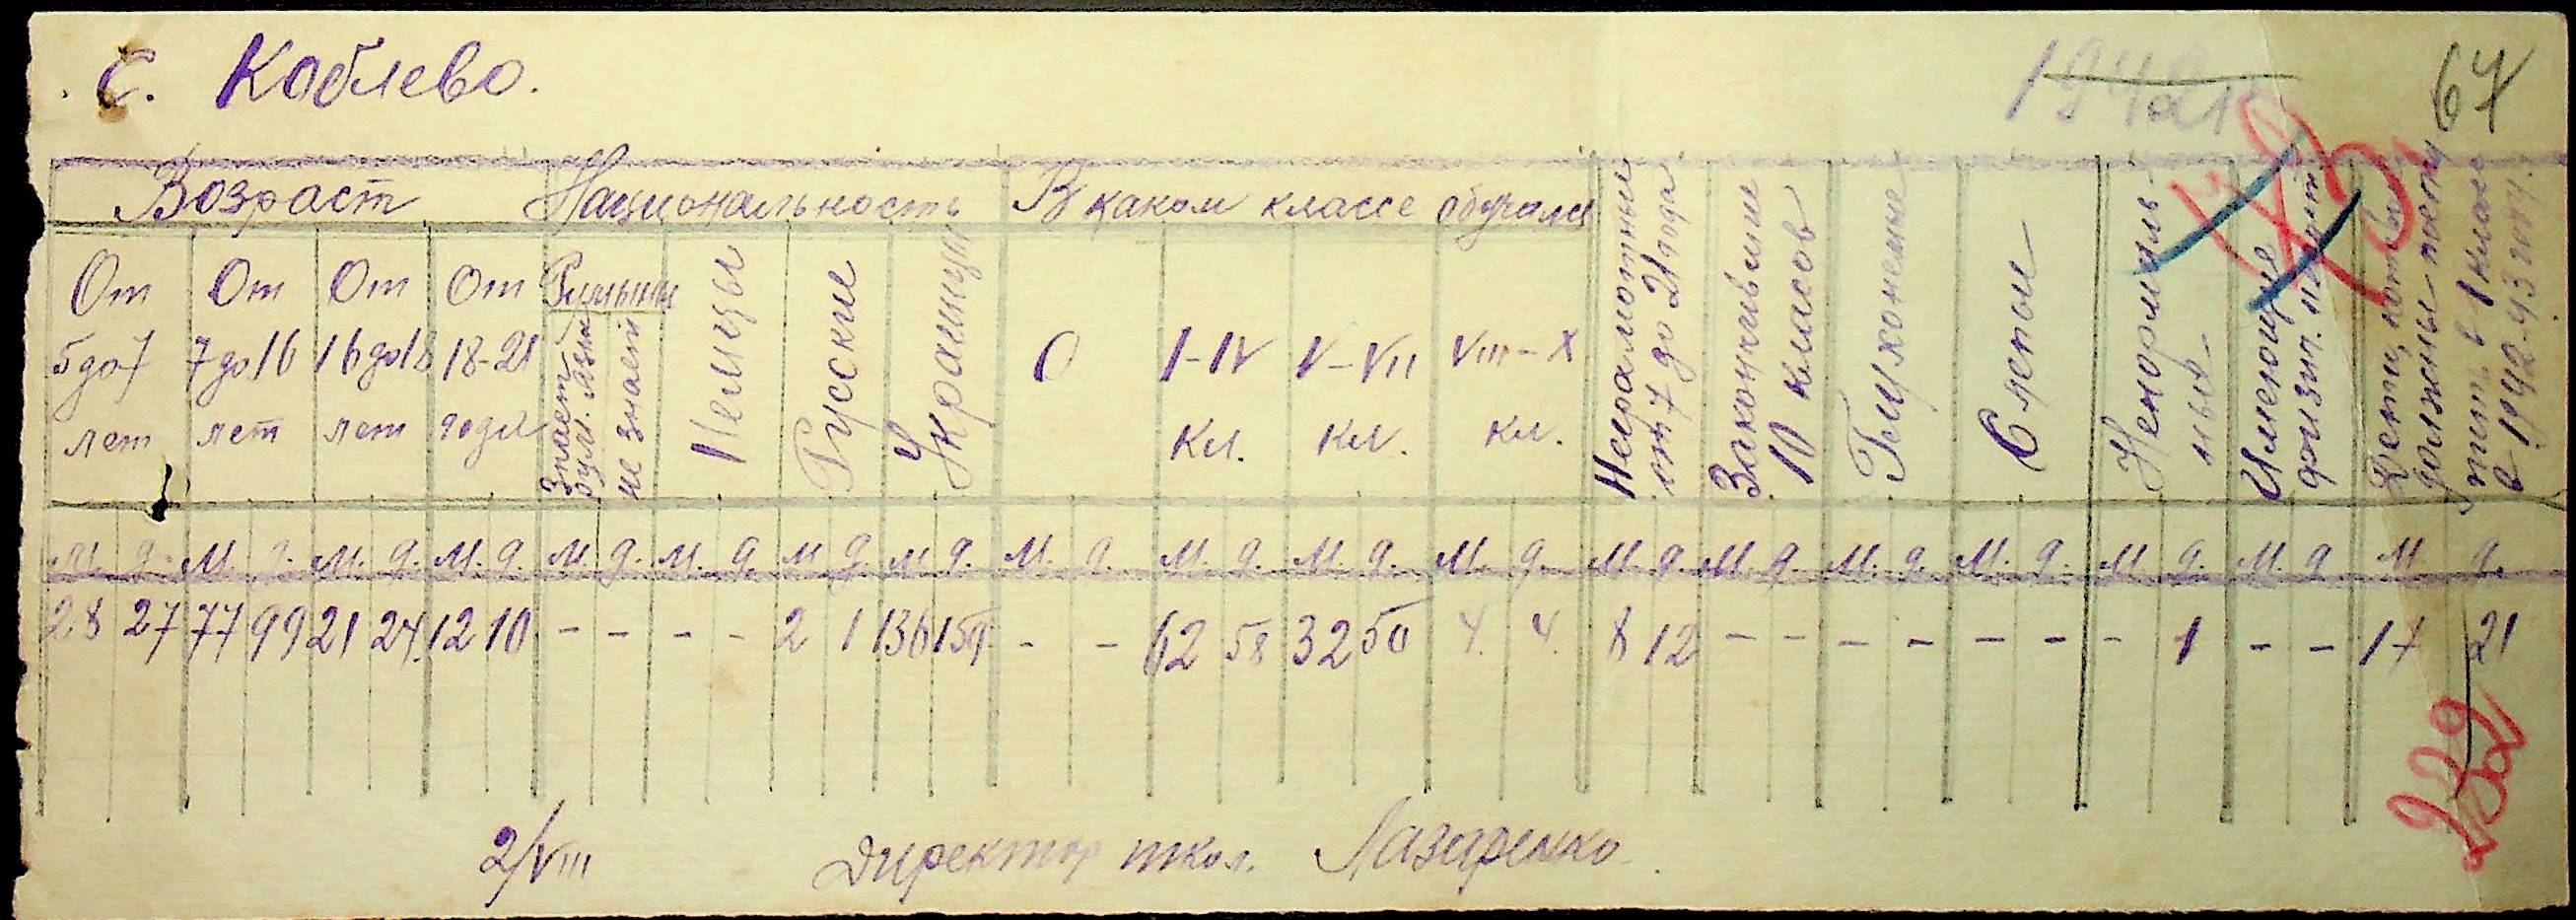 С. Коблево.
1942 г.
67
Возраст Национальность В каком классе обучался
От 5 до 7 лет
От 7 до 16 лет
От 16 до 18 лет
От 18-21 года
Румыны
Знает рум. язык
не знает
Немцы
Русские
Украинцы
0
I-IV кл.
V-VII кл.
VIII-X кл.
Неграмотные от 7 до 21 года
Закончившие 10 классов
Глухонемые
Слепые
Ненормальные
Имеющие физич.
Дети, которые должны поступить в 1 класс в 1942-43 году.
м. д. м. д. м. д. м. д. м. д. м. д. м д. м д. м. д. м. д. м. д. м. д. м. д. м д. м. д. м. д. м. д. м. д м. д.
28 27 77 99 21 24. 12 10 - - - - 2 1 136 159 - - 62 58 32 50 4. 4. 8 12 - - - - - - - 1 - - 17 21
232
2/VIII Директор школ. Лазаренко.